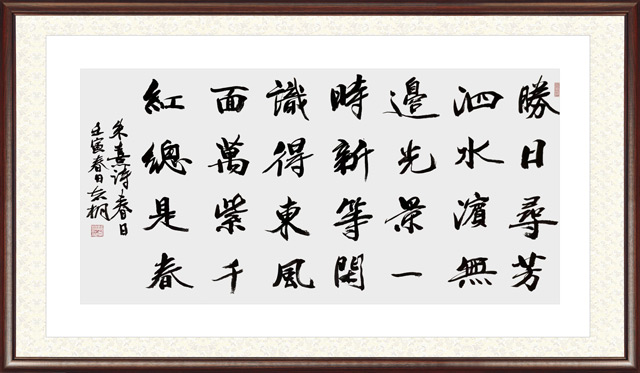 勝日尋芳
泗水濱無
邊光景一
時新等閑
識得東風
面萬紫千
紅總是春
朱熹詩春日
壬寅春日